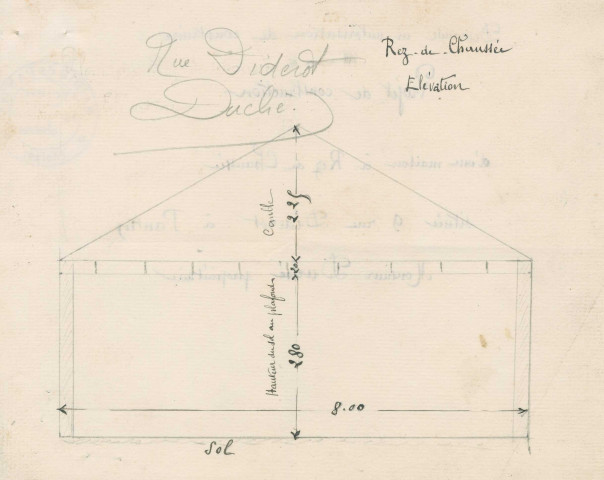 Rue Diderot
Duché.
Rez-de-Chaussée
Elévation
Comble
2.25
Hauteur du sol au plafond
280
8.00
Sol